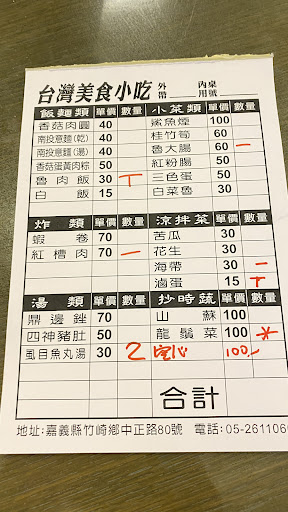 台灣美食小吃 外帶 內用 桌號
飯麵類 單價 數量 小菜類 單價 數量
香菇肉圓 40 鯊魚煙 100
南投意麵(乾) 40 桂竹筍 60
南投意麵(湯) 40 魯大腸 60 一
香菇蛋黃肉粽 50 紅粉腸 50
魯肉飯 30 丅 三色蛋 50
白飯 15 白菜魯 30
炸類 單價 數量 涼拌菜 單價 數量
蝦卷 70 苦瓜 30
紅槽肉 70 一 花生 30
海帶 30 一
滷蛋 15 丅
湯類 單價 數量 抄時蔬 單價 數量
鼎邊銼 70 山蘇 100
四神豬肚 50 龍鬚菜 100
虱目魚丸湯 30 2 空心 100
合計
地址:嘉義縣竹崎鄉中正路80號 電話:05-261106